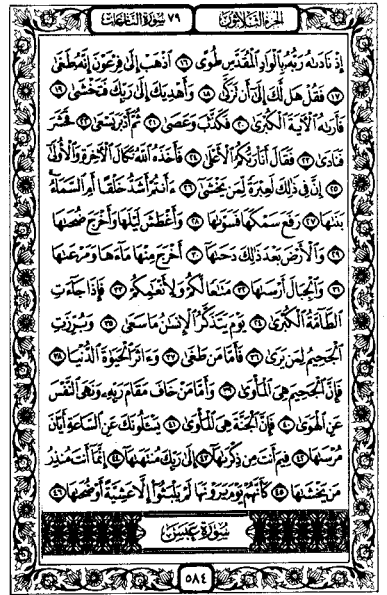 الجزء الثلاثون ٧٩ سورة النازعات
إِذْ نَادَىٰهُ رَبُّهُۥ بِٱلْوَادِ ٱلْمُقَدَّسِ طُوًى ١٦ ٱذْهَبْ إِلَىٰ فِرْعَوْنَ إِنَّهُۥ طَغَىٰ
١٧ فَقُلْ هَل لَّكَ إِلَىٰٓ أَن تَزَكَّىٰ ١٨ وَأَهْدِيَكَ إِلَىٰ رَبِّكَ فَتَخْشَىٰ ١٩
فَأَرَىٰهُ ٱلْأٓيَةَ ٱلْكُبْرَىٰ ٢٠ فَكَذَّبَ وَعَصَىٰ ٢١ ثُمَّ أَدْبَرَ يَسْعَىٰ ٢٢ فَحَشَرَ
فَنَادَىٰ ٢٣ فَقَالَ أَنَا۠ رَبُّكُمُ ٱلْأَعْلَىٰ ٢٤ فَأَخَذَهُ ٱللَّهُ نَكَالَ ٱلْأٓخِرَةِ وَٱلْأُولَىٰٓ
٢٥ إِنَّ فِى ذَٰلِكَ لَعِبْرَةً لِّمَن يَخْشَىٰٓ ٢٦ ءَأَنتُمْ أَشَدُّ خَلْقًا أَمِ ٱلسَّمَآءُ ۚ
بَنَىٰهَا ٢٧ رَفَعَ سَمْكَهَا فَسَوَّىٰهَا ٢٨ وَأَغْطَشَ لَيْلَهَا وَأَخْرَجَ ضُحَىٰهَا
٢٩ وَٱلْأَرْضَ بَعْدَ ذَٰلِكَ دَحَىٰهَآ ٣٠ أَخْرَجَ مِنْهَا مَآءَهَا وَمَرْعَىٰهَا
٣١ وَٱلْجِبَالَ أَرْسَىٰهَا ٣٢ مَتَـٰعًا لَّكُمْ وَلِأَنْعَـٰمِكُمْ ٣٣ فَإِذَا جَآءَتِ
ٱلطَّآمَّةُ ٱلْكُبْرَىٰ ٣٤ يَوْمَ يَتَذَكَّرُ ٱلْإِنسَـٰنُ مَا سَعَىٰ ٣٥ وَبُرِّزَتِ
ٱلْجَحِيمُ لِمَن يَرَىٰ ٣٦ فَأَمَّا مَن طَغَىٰ ٣٧ وَءَاثَرَ ٱلْحَيَوٰةَ ٱلدُّنْيَا ٣٨
فَإِنَّ ٱلْجَحِيمَ هِىَ ٱلْمَأْوَىٰ ٣٩ وَأَمَّا مَنْ خَافَ مَقَامَ رَبِّهِۦ وَنَهَى ٱلنَّفْسَ
عَنِ ٱلْهَوَىٰ ٤٠ فَإِنَّ ٱلْجَنَّةَ هِىَ ٱلْمَأْوَىٰ ٤١ يَسْـَٔلُونَكَ عَنِ ٱلسَّاعَةِ أَيَّانَ
مُرْسَىٰهَا ٤٢ فِيمَ أَنتَ مِن ذِكْرَىٰهَآ ٤٣ إِلَىٰ رَبِّكَ مُنتَهَىٰهَآ ٤٤ إِنَّمَآ أَنتَ مُنذِرُ
مَن يَخْشَىٰهَا ٤٥ كَأَنَّهُمْ يَوْمَ يَرَوْنَهَا لَمْ يَلْبَثُوٓا۟ إِلَّا عَشِيَّةً أَوْ ضُحَىٰهَا ٤٦
سورة عبس
٥٨٤